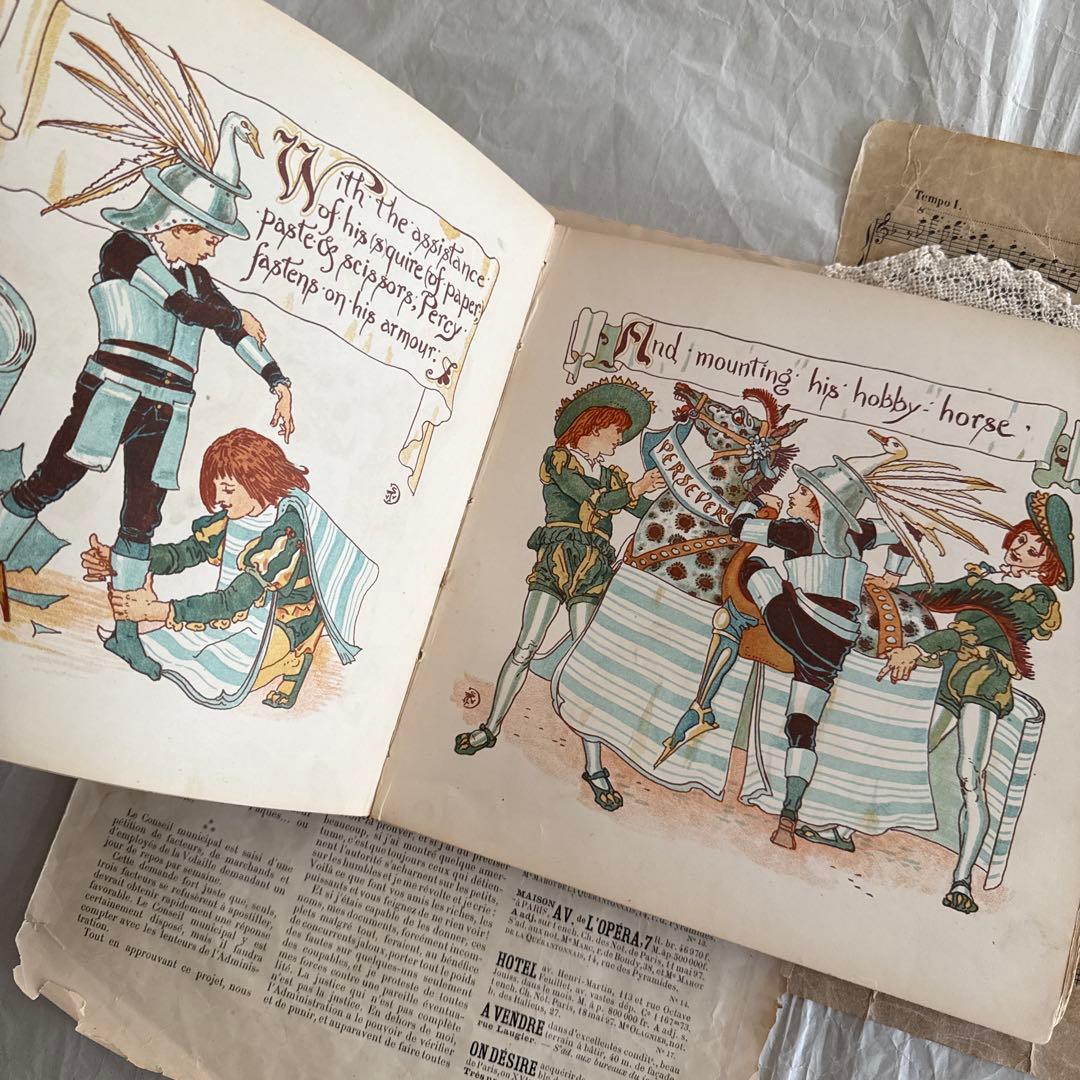 With·the·assistance·
of·his·squire(of·paper,
paste·&·scissors;)Percy·
fastens·on·his·armour:
And mounting·his·hobby-horse·
PERSEVER
Tempo I.
Le Conseil municipal est saisi d'une
pétition de facteurs, de marchands et
d'employés de la Volaille demandant un
jour de repos par semaine.
Cette demande fort juste que, seuls,
trois facteurs se refusèrent à apostiller,
devrait obtenir rapidement une réponse
favorable. Le Conseil municipal y est
certainement disposé, mais il faudra
compter avec les lenteurs de l'Adminis-
tration.
Tout en approuvant ce projet, nous
beaucoup, et prouver
lume, c'est que toujours ceux qui détien-
nent l'autorité s'acharnent sur les petits,
sur les humbles et je me révolte et je crie:
voilà ce que font vos amis les riches, les
puissants et vous feignez de ne rien voir!
Et si j'étais capable de les donner, ces
noms, mes documents, forcément incom-
plets malgré tout, feraient, au bénéfice
de concurrents jaloux, porter tout le poids
des fautes sur quelques-uns seulement
des coupables, et je proteste de toutes
mes forces contre une pareille éventua-
lité. La justice qui n'est pas complète
n'est pas la justice. En dehors de moi,
l'Administration a le pouvoir de vérifier
et de punir, et auparavant de faire toutes
MAISON AV. de L'OPÉRA, 7
HOTEL av. Henri-Martin, 113 et rue Octave
Feuillet, av. vastes dép.
A VENDRE dans d'excellentes condit., beau
terrain à bâtir, 40 m. de façade
rue Laugier. — S'ad. aux bureaux du
ON DÉSIRE acquérir